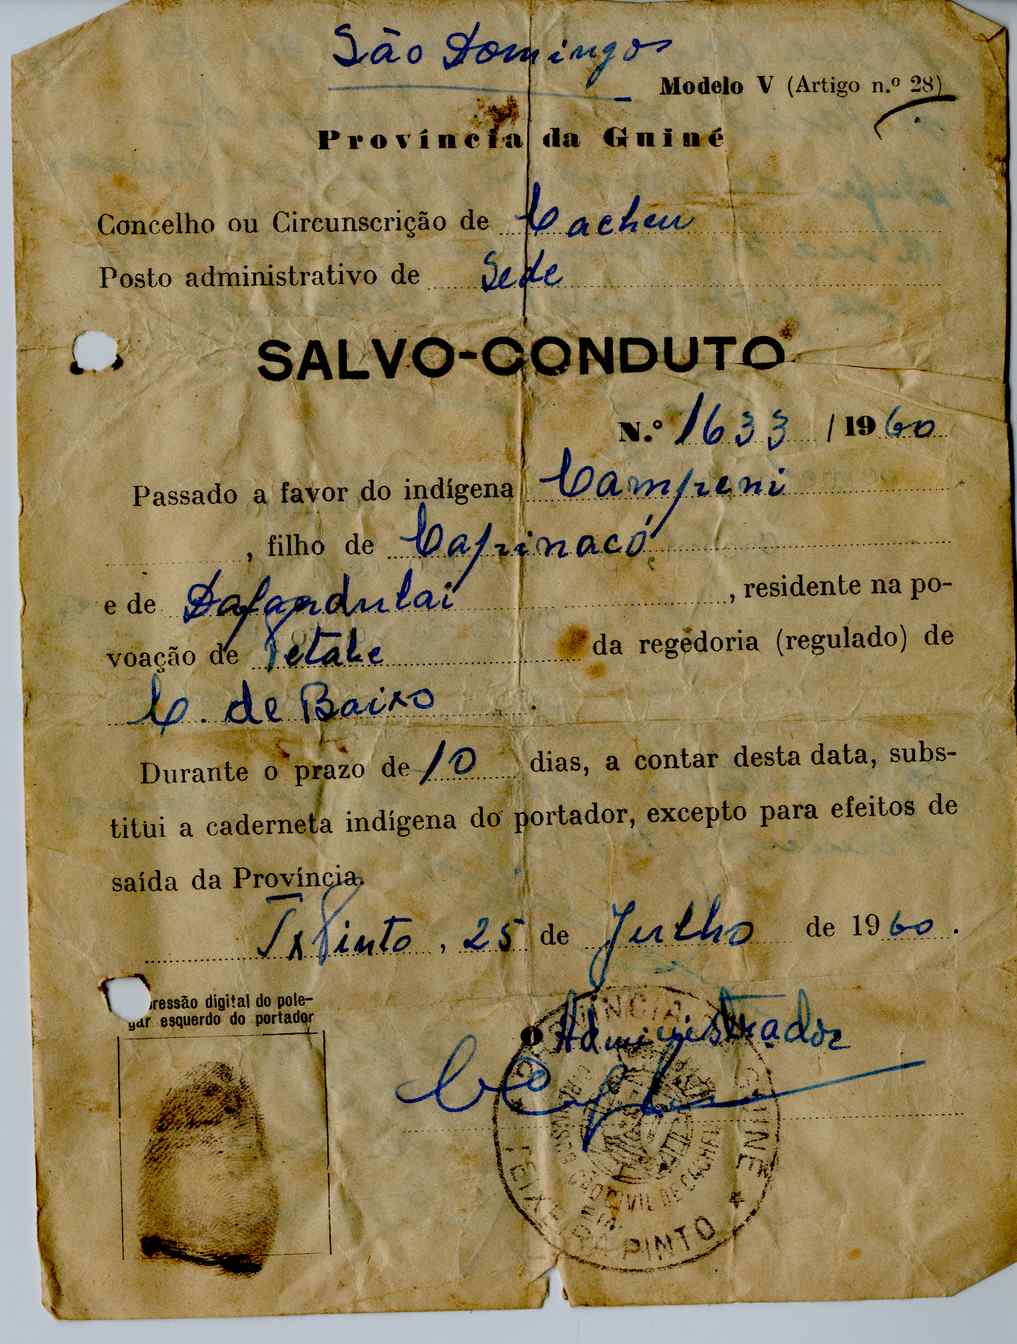 São Domingos
Modelo V (Artigo n.º 28)
Província da Guiné
Concelho ou Circunscrição de Cacheu
Posto administrativo de Sede
SALVO-CONDUTO
N.º 1633 / 1960
Passado a favor do indígena Campreni
, filho de Caprinacó
e de Dafandulai , residente na po-
voação de Petabe da regedoria (regulado) de
C. de Baixo .
Durante o prazo de 10 dias, a contar desta data, subs-
titui a caderneta indígena do portador, excepto para efeitos de
saída da Província.
Tx Pinto , 25 de Julho de 1960 .
pressão digital do pole-
gar esquerdo do portador
O Administrador
PROVÍNCIA DA GUINÉ
TEIXEIRA PINTO